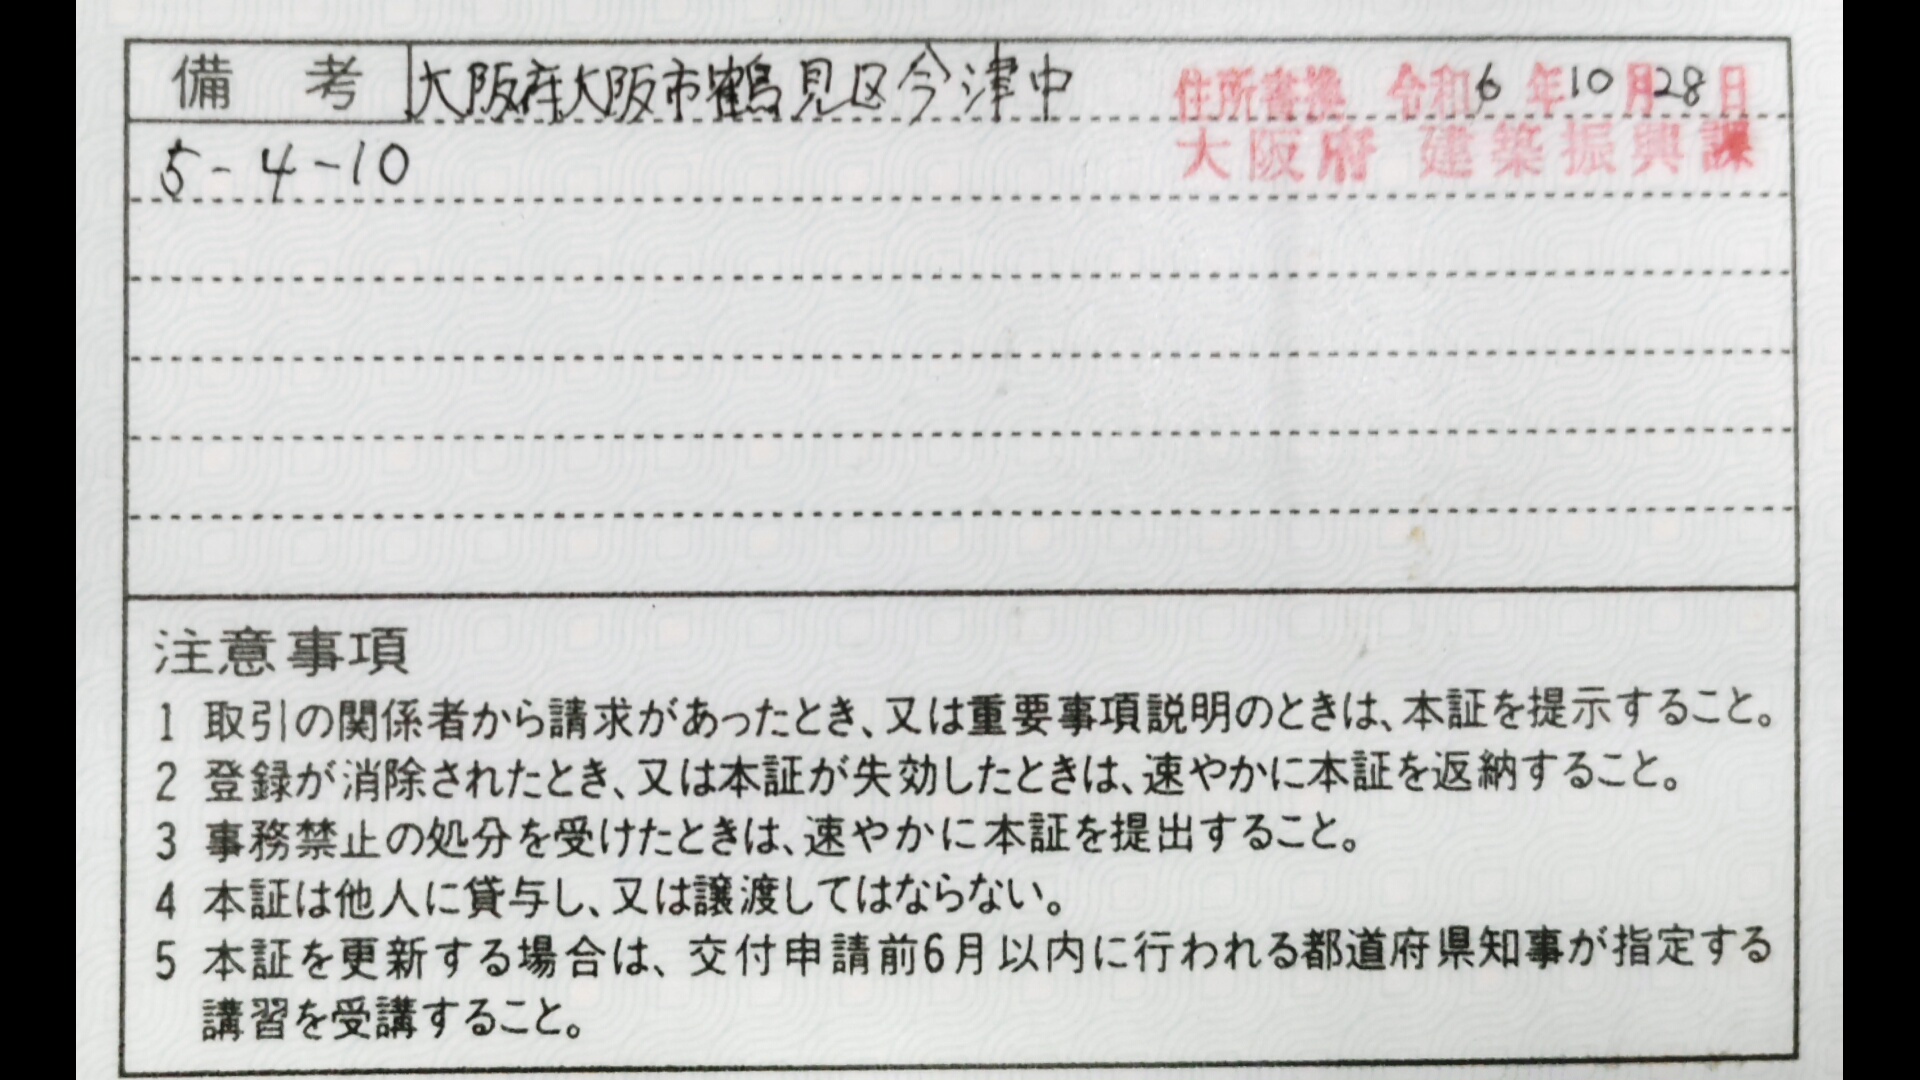 備考 大阪府大阪市鶴見区今津中
住所書換 令和6年10月28日
大阪府 建築振興課
5-4-10
注意事項
1 取引の関係者から請求があったとき、又は重要事項説明のときは、本証を提示すること。
2 登録が消除されたとき、又は本証が失効したときは、速やかに本証を返納すること。
3 事務禁止の処分を受けたときは、速やかに本証を提出すること。
4 本証は他人に貸与し、又は譲渡してはならない。
5 本証を更新する場合は、交付申請前6月以内に行われる都道府県知事が指定する
講習を受講すること。